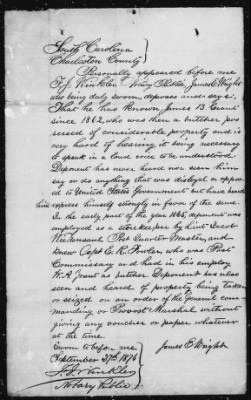 South Carolina
Charleston County
Personally appeared before me
F. J. Winkler Notary Public James E Wright
who being duly sworn, deposes and says:
That he has known James B. Grant
since 1862, who was then a butcher pos
sessed of considerable property and is
very hard of hearing it being necessary
to speak in a loud voice to be understood
Deponent has never heard nor seen him
say or do anything that was disloyal or opposed
to United States Government but have heard
him express himself strongly in favor of the same.
In the early part of the year 1865, deponent was
employed as a storekeeper by Lieut Jacob
Post Quarter Master, and
knew Capt E. R. Fowler, who was Post
Commissary and had in his employ
W. A. Grant as butcher Deponent has also
seen and heard of property being taken
or seized on an order of the General com
manding or Provost Marshal without
giving any voucher or paper whatever
at the time.
Sworn to before me
September 27th 1876
F. J. Winkler
Notary Public
James E Wright